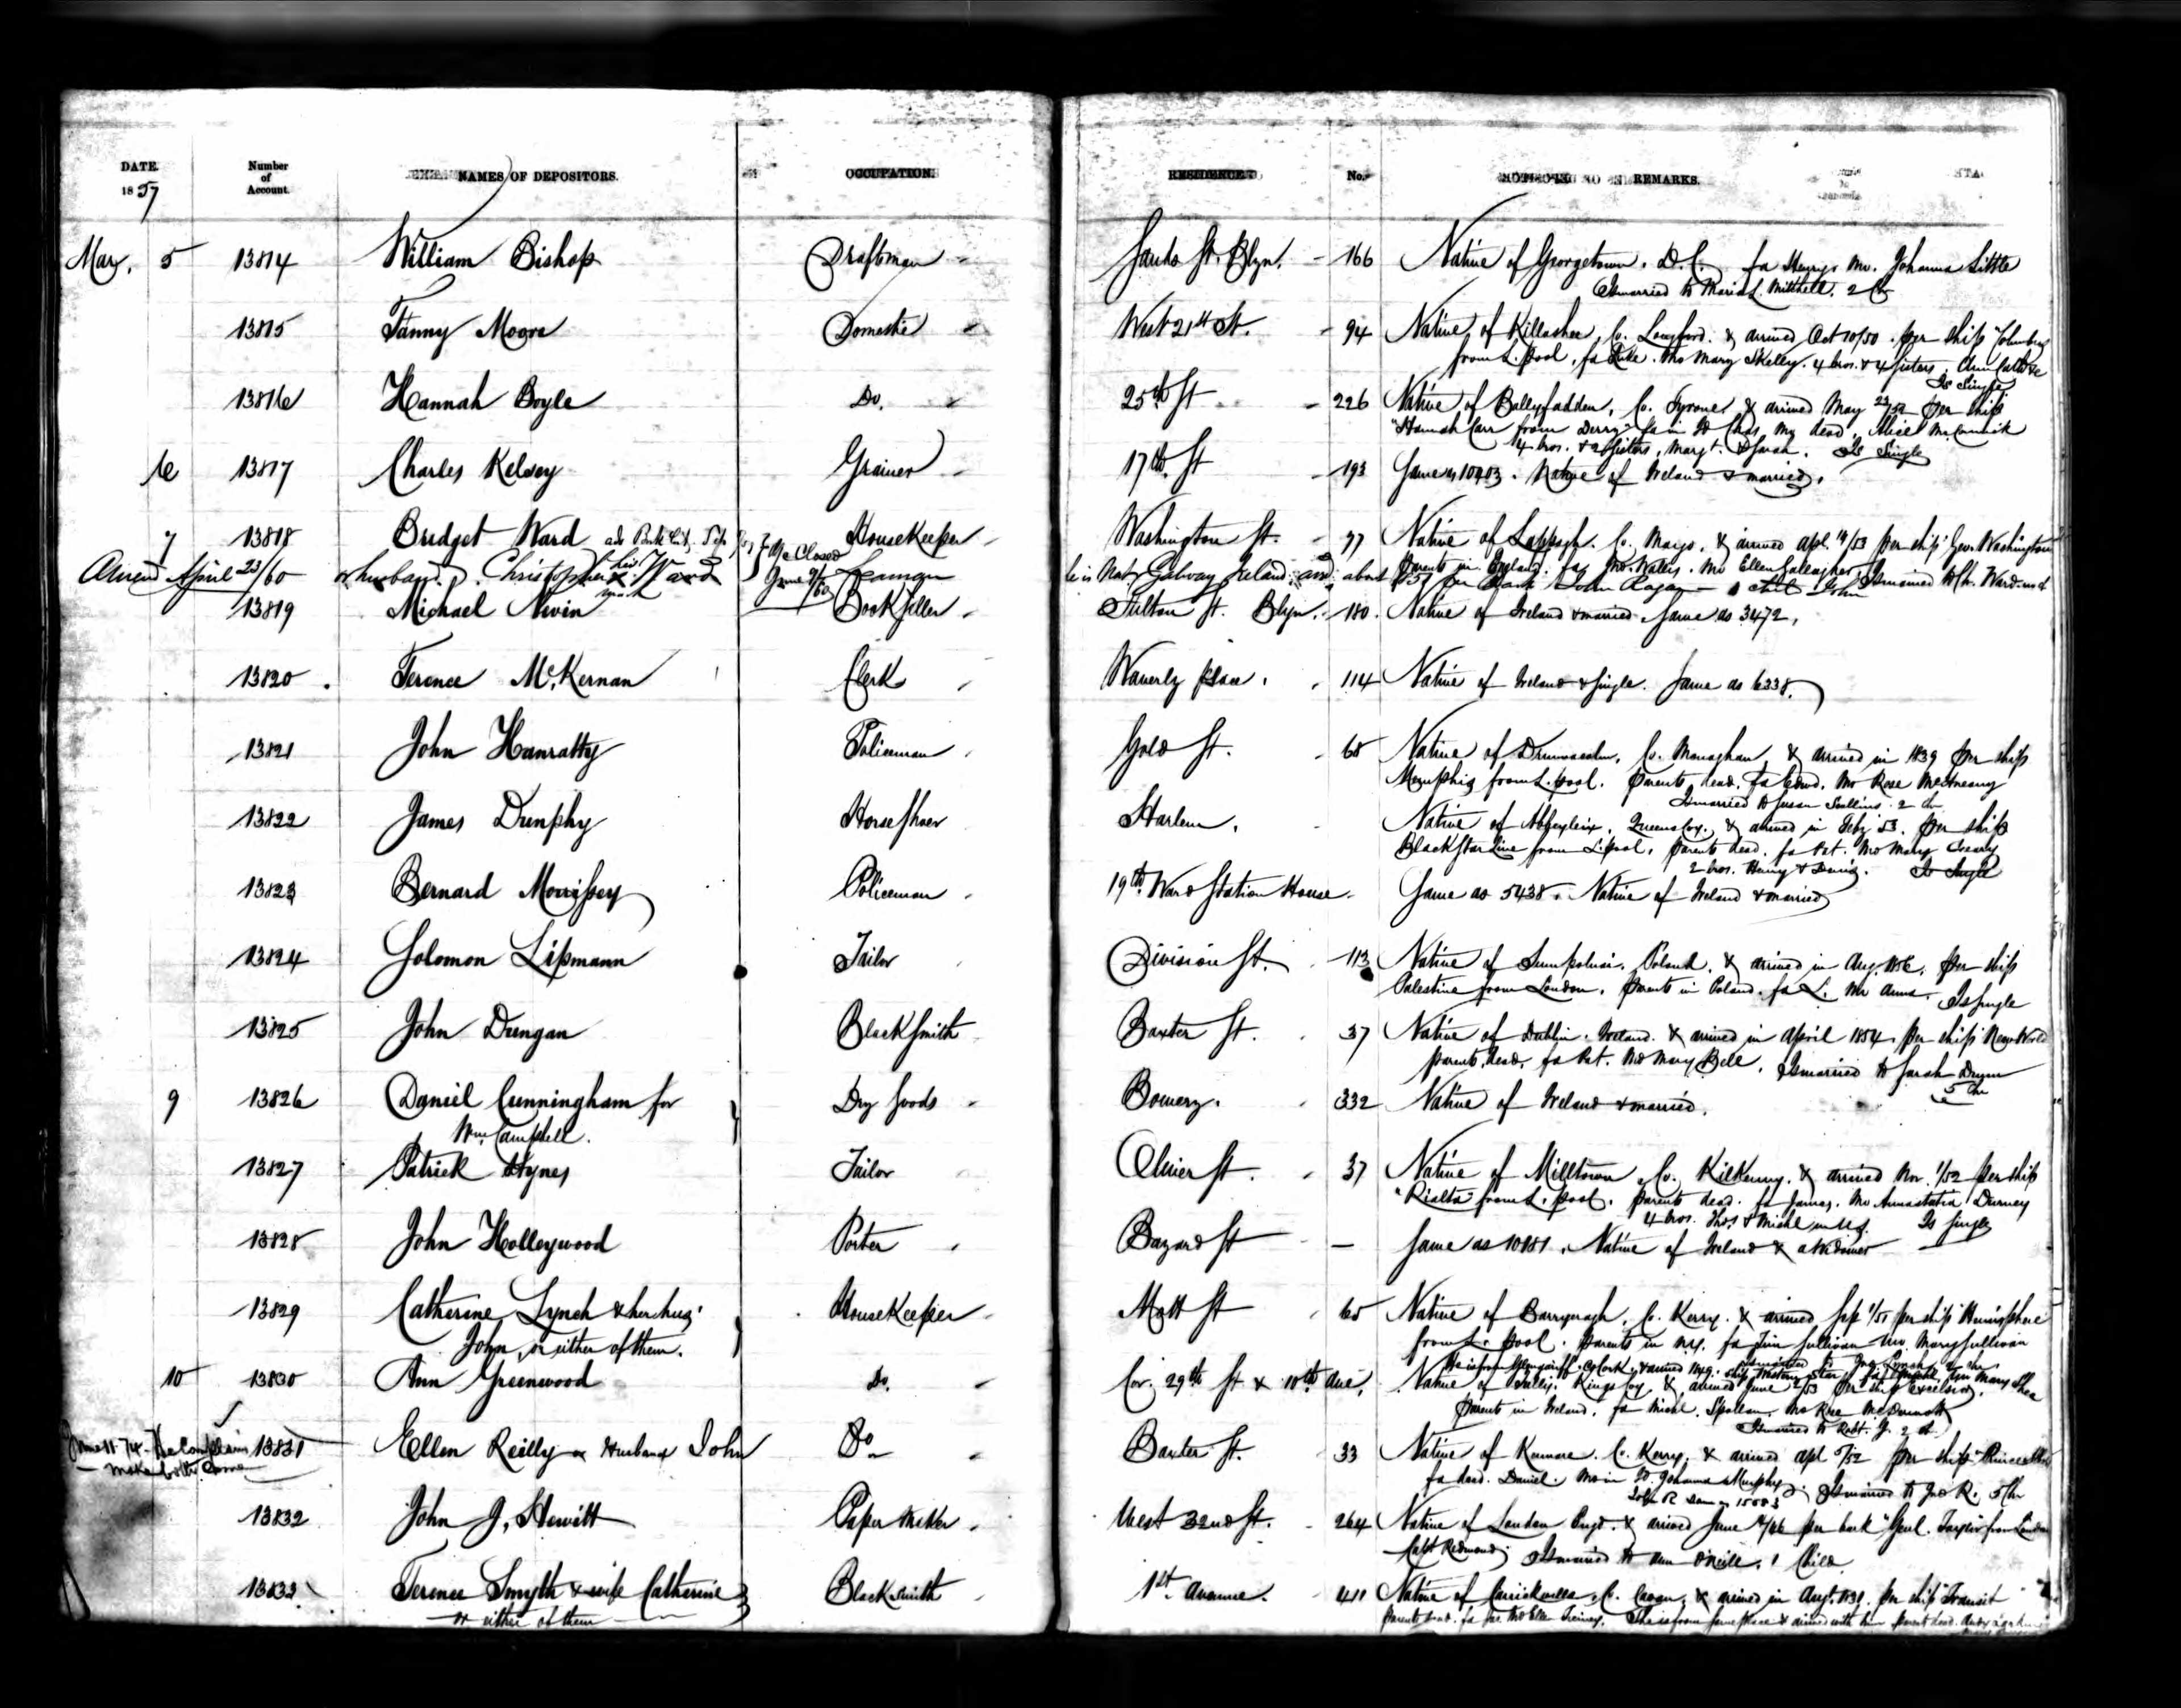 DATE. Number of Account. NAMES OF DEPOSITORS. OCCUPATION. RESIDENCE No. REMARKS.
1857
Mar. 5 13814 William Bishop Draftsman Sands St. Blyn. 166 Native of Georgetown, D.C. fa Henry Mo. Johanna Little
Is married to Maria L. Mitchell. 2 Ch
13815 Fanny Moore Domestic West 21st St. 94 Native of Killashee, Co. Longford. & arrived Oct 10/50 per ship Columbus
from L.pool, fa Luke. Mo Mary Skelly. 4 bros. & 4 sisters. Ann Cath &c
Is Single
13816 Hannah Boyle Do. 25th St 226 Native of Ballyfadden, Co. Tyrone & arrived May 23/52 per ship
"Hannah Carr from Derry" fa in Chas. Mo dead. Alice McCormick
4 bros. & 2 Sisters, Margt. & Sarah. Is Single
6 13817 Charles Kelsey Grainer 17th St 193 Same as 10403. Native of Ireland & married.
7 13818 Bridget Ward HouseKeeper Washington St. 77 Native of Lappagh. Co. Mayo. & arrived apl. 14/53 per ship Geo. Washington
Parents in England. fa Mo Ellen Gallagher. Is married to Ch. Ward
April 23/60 or husband Christopher his x mark Ward Ac Closed June 9/60 Seaman he is Nat. Galway Ireland arrd about per Bark John
13819 Michael Nivin BookSeller Fulton St. Blyn. 180. Native of Ireland & married. Same as 3472.
13820 Terence McKernan Clerk Waverly place. 114 Native of Ireland & Single. Same as 6338.
13821 John Hanratty Policeman Gold St. 68 Native of Co. Monaghan, & arrived in 1839 per ship
Memphis from L.pool. Parents dead. fa Edwd. Mo Rose McEneany
Is married to Susan 2 Ch
13822 James Dunphy HorseShoer Harlem. Native of Abbeyleix, Queens Coy. & arrived in Feby 53. per ship
Black Star Line from L.pool, parents dead. fa Pat. Mo Mary
2 bros. Henry & David. Is Single
13823 Bernard Morrissey Policeman 19th Ward Station House. Same as 5438. Native of Ireland & married
13824 Solomon Lipmann Tailor Division St. 113 Native of Poland. & arrived in Aug. 1856. per ship
Palestine from London. Parents in Poland. fa L. Mo Anna. Is Single
13825 John Dungan BlackSmith Baxter St. 37 Native of Dublin. Ireland. & arrived in April 1854 per ship New World
parents dead, fa Pat. Mo Mary Bell. Is married to Sarah
5 Ch
9 13826 Daniel Cunningham for Dry Goods Bowery. 332 Native of Ireland & married.
Wm. Campbell.
13827 Patrick Hynes Tailor Oliver St. 37 Native of Milltown, Co. Kilkenny. & arrived Nov. 1/52 per ship
"Rialto" from L.pool. Parents dead. fa James. Mo Annastatia Durney
4 bros. Thos. & Michl in U.S. Is Single
13828 John Holleywood Porter Bayard St — Same as 10181. Native of Ireland & a Widower
13829 Catherine Lynch & her hus. HouseKeeper Mott St 65 Native of Co. Kerry. & arrived Sep 1/51 per ship Hemisphere
John, or either of them. from L.pool. Parents in N.Y. fa Tim Sullivan Mo. Mary Sullivan
10 13830 Ann Greenwood Do. Cor. 29th St & 10th Ave. Native of Tully. Kings Coy. & arrived June 2/53 per ship Excelsior.
Parents in Ireland. fa Michl. Mo Rose McDermott
Is married to Robt. G. 2 Ch
June 11-74 13831 Ellen Reilly or Husband John Do Baxter St. 33 Native of Kenmare. Co. Kerry. & arrived apl 5/52 per ship
fa dead. Daniel. Mo in Johanna Murphy. Is married to Jno R. 5 Ch
John R same as 15083
13832 John J. Hewitt Paper Maker West 32nd St. 264 Native of London Engd. & arrived June per bark "Genl. Taylor from London
Capt Redmond. Is married to Ann O'Neill. 1 Child
13833 Terence Smyth & wife Catherine BlackSmith 1st Avenue. 411 Native of Co. Cavan, & arrived in Augt. per ship Transit
or either of them